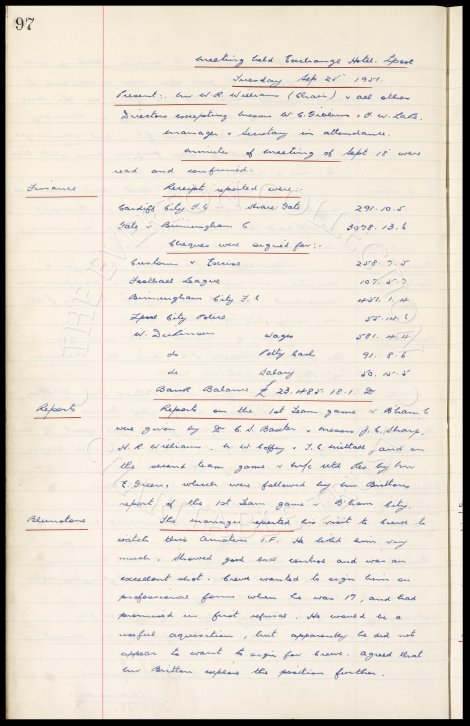 97
Meeting held Exchange Hotel. Lpool
Tuesday Sep 25 1951.
Present:. Mr W. R. Williams (Chair) & all other
Directors excepting Messrs W. C. & W. Lake.
Manager & Secretary in attendance.
Minutes of Meeting of Sept 18 were
read and confirmed.
Finance Receipts reported were:-
Cardiff City F.C share Gate 291.10.5
Gate v Birmingham C 3078.13.6
Cheques were signed for:-
Customs & Excise 258.7.5
Football League 107.5.7
Birmingham City F.C 451.1.4
Lpool City Police 55.14.6
W. Dickinson Wages 581.4.4
do Petty Cash 91.8.6
do Salary 50.15.5
Bank Balance £ 23.485.18.1. D
Reports Reports on the 1st Team game v Bham C
were given by Dr C. S. Baxter & Messrs J. C. Sharp,
H. R Williams. N. W Coffey & T. C. Nuttall, and on
the second team game v Wolves Utd Res by Mr
E Green, which were followed by Mr Brittons
report of the 1st Team game v B'ham City.
Blunstone The manager reported his visit to Crewe to
watch this Amateur I.F. He liked him very
much. Showed good ball control and was an
excellent shot. Crewe wanted to sign him on
professional forms when he was 17, and had
promised us first refusal. He would be a
useful acquisition, but apparently he did not
appear to want to sign for Crewe. Agreed that
Mr Britton explore the position further.
THE EVERTON COLLECTION